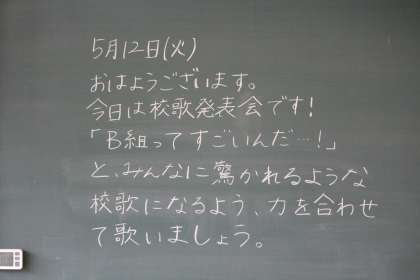 5月12日(火)
おはようございます。
今日は校歌発表会です!
「B組ってすごいんだ…!」
と、みんなに驚かれるような
校歌になるよう、力を合わせ
て歌いましょう。